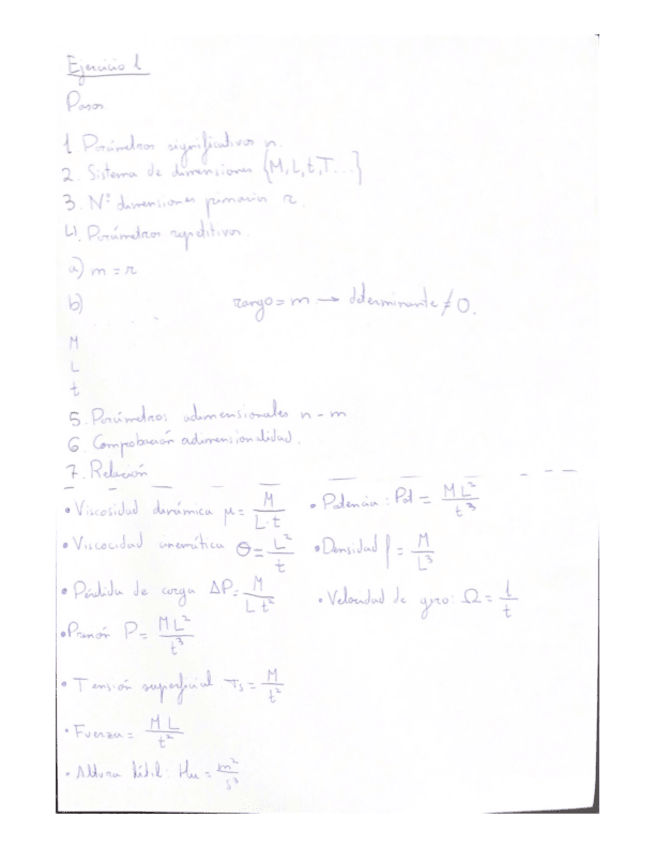 Ejercicio 1
Pasos
1 Parámetros significativos n.
2. Sistema de dimensiones {M, L, t, T...}
3. Nº dimensiones primarias r.
4. Parámetros repetitivos.
a) m = r
b) rango = m → determinante ≠ 0.
M
L
t
5. Parámetros adimensionales n - m
6. Comprobación adimensionalidad.
7. Relación
• Viscosidad dinámica μ = M / L·t
• Potencia: Pot = ML² / t³
• Viscocidad cinemática Θ = L² / t
• Densidad ρ = M / L³
• Pérdida de carga ΔP = M / L t²
• Velocidad de giro: Ω = 1 / t
• Presión P = ML² / t³
• Tensión superficial Ts = M / t²
• Fuerza = ML / t²
• Altura útil: Hu = m² / s³